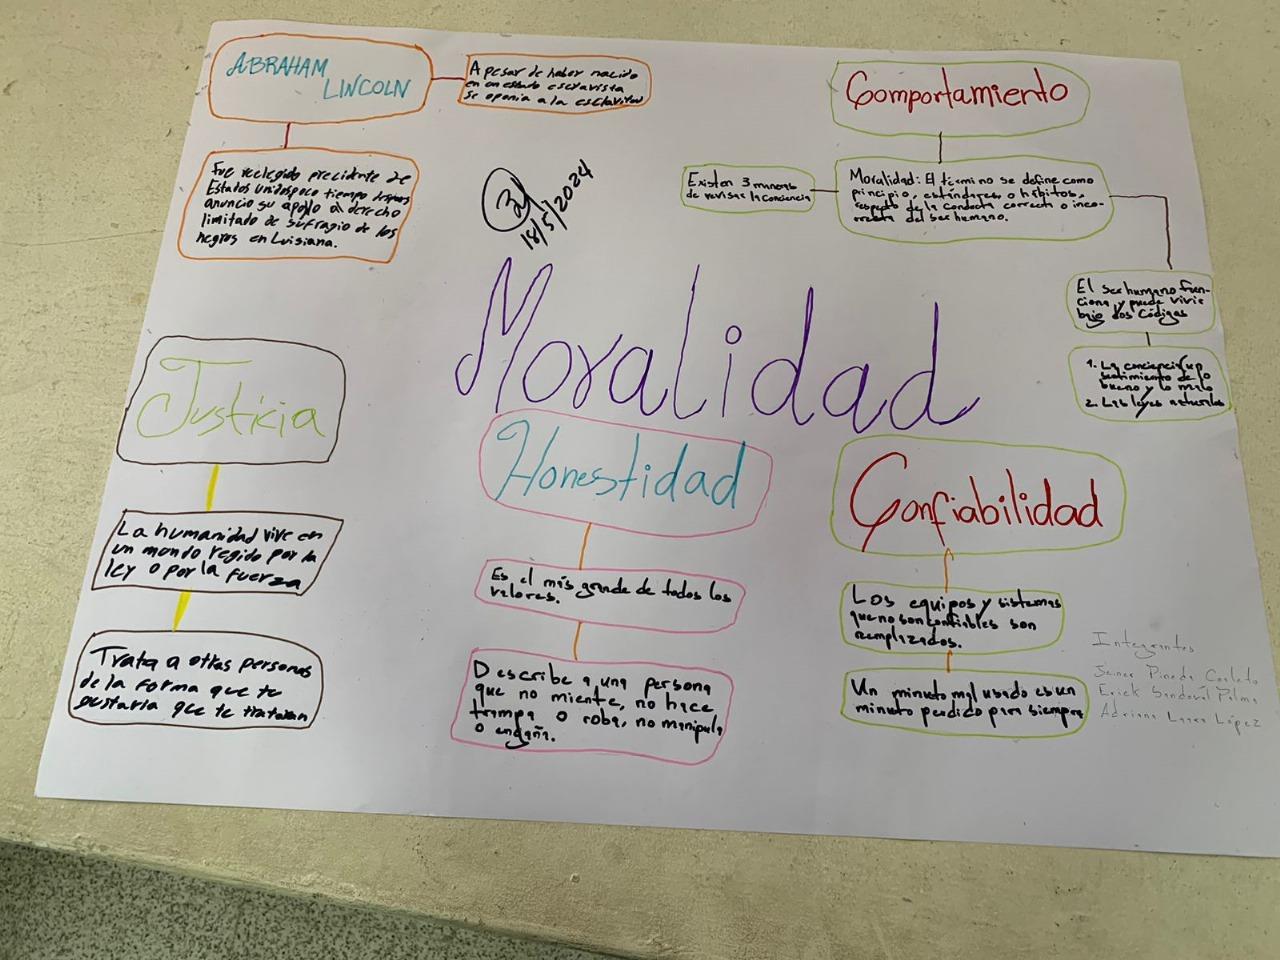 ABRAHAM
LINCOLN
A pesar de haber nacido
en un estado esclavista
se oponia a la esclavitud
Fue reelegido precidente de
Estados Unidos poco tiempo despues
anuncio su apollo al derecho
limitado de sufragio de los
negros en Luisiana.
18/5/2024
Comportamiento
Existen 3 maneras
de revisar la conciencia
Moralidad: El término se define como
principio, estándares o hábitos
respecto de la conducta correcta o inco-
rrecta del ser humano.
El ser humano fun-
ciona y puede vivir
bajo dos Códigos
1. La concepción/un
sentimiento de lo
bueno y lo malo
2. Las leyes naturales
Moralidad
Justicia
La humanidad vive en
un mundo regido por la
ley o por la fuerza
Trata a otras personas
de la forma que te
gustaria que te trataran
Honestidad
Es el más grande de todos los
valores.
Describe a una persona
que no miente, no hace
trampa o roba, no manipula
o engaña.
Confiabilidad
Los equipos y sistemas
que no son confiables son
remplazados.
Un minuto mal usado es un
minuto perdido para siempre
Integrantes
Pineda
Erick Sandoval Palma
Adriana López